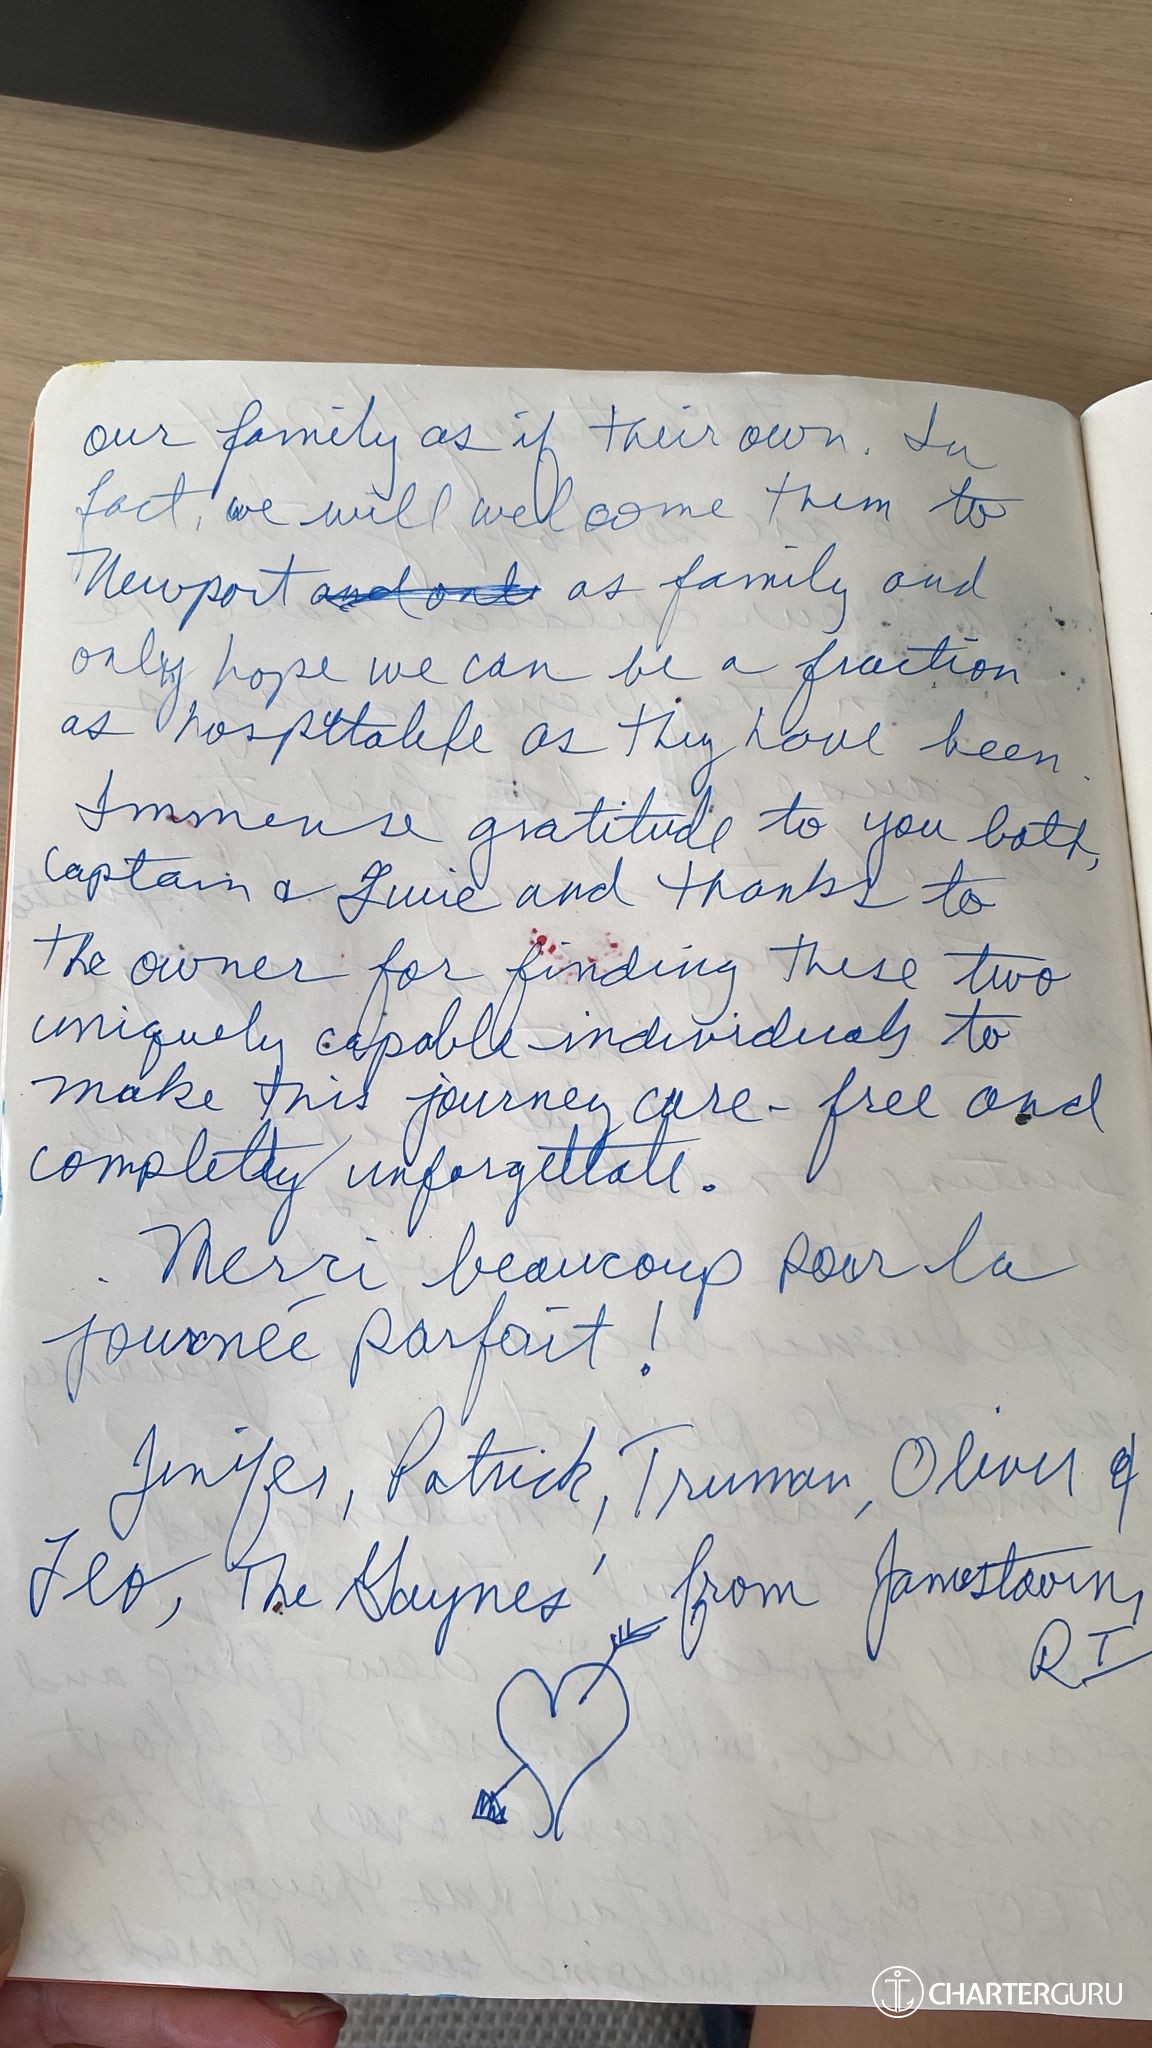 our family as if their own. In
fact, we will welcome them to
Newport as family and
only hope we can be a fraction
as hospitable as they have been.
Immense gratitude to you both,
captain & and thanks to
the owner for finding these two
uniquely capable individuals to
make this journey care-free and
completely unforgettable.
Merci beaucoup pour la
journée parfait!
Jenifer, Patrick, Truman, Oliver &
Leo, The Haynes' from Jamestown,
RI
CHARTERGURU